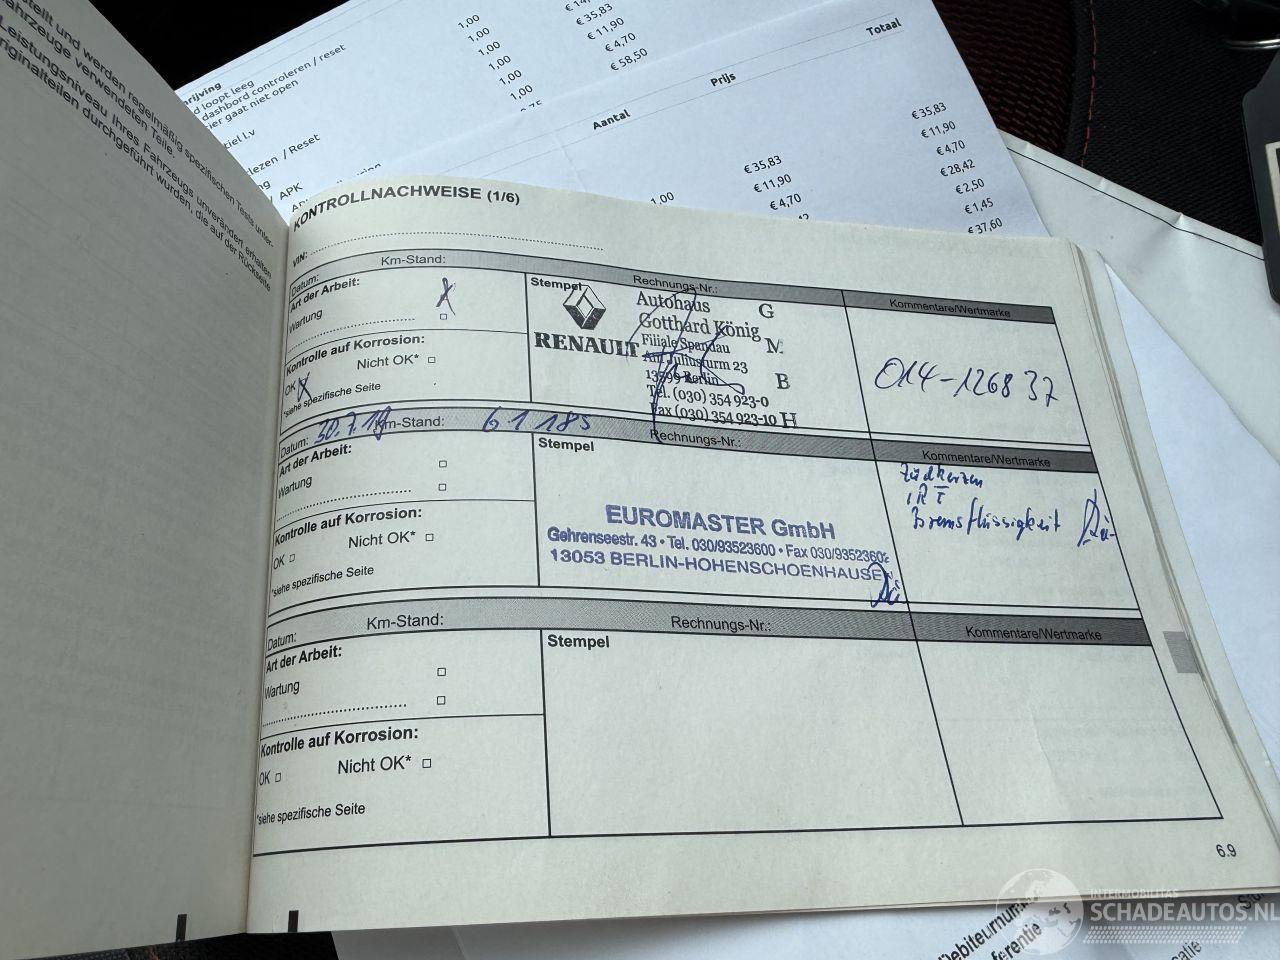 stellt und werden regelmäßig spezifischen Tests unter-
Fahrzeuge verwendeten Teile.
Leistungsniveau Ihres Fahrzeugs unverändert erhalten
riginalteilen durchgeführt wurden, die auf der Rückseite
loopt leeg
dashbord controleren / reset
gaat niet open
/ Reset
APK
1,00
1,00
1,00
1,00
1,00
€ 35,83
€ 11,90
€ 4,70
€ 58,50
Aantal Prijs Totaal
1,00 € 35,83 € 35,83
€ 11,90 € 11,90
€ 4,70 € 4,70
€ 28,42
€ 2,50
€ 1,45
€ 37,60
KONTROLLNACHWEISE (1/6)
VIN:
Datum: Km-Stand: Rechnungs-Nr.: Kommentare/Wertmarke
Art der Arbeit:
Wartung
Kontrolle auf Korrosion:
OK Nicht OK*
*siehe spezifische Seite
Stempel
RENAULT
Autohaus G
Gotthard König M
Filiale Spandau
Am Juliusturm 23
13599 Berlin B
Tel. (030) 354 923-0
Fax (030) 354 923-10 H
014-126837
Datum: 30.7.19 Km-Stand: 61185 Rechnungs-Nr.: Kommentare/Wertmarke
Art der Arbeit:
Wartung
Kontrolle auf Korrosion:
OK Nicht OK*
*siehe spezifische Seite
Stempel
EUROMASTER GmbH
Gehrenseestr. 43 • Tel. 030/93523600 • Fax 030/9352360
13053 BERLIN-HOHENSCHOENHAUSEN
Zündkerzen
Bremsflüssigkeit
Datum: Km-Stand: Rechnungs-Nr.: Kommentare/Wertmarke
Art der Arbeit:
Wartung
Kontrolle auf Korrosion:
OK Nicht OK*
*siehe spezifische Seite
Stempel
6.9
INTERMOBILITAS
SCHADEAUTOS.NL